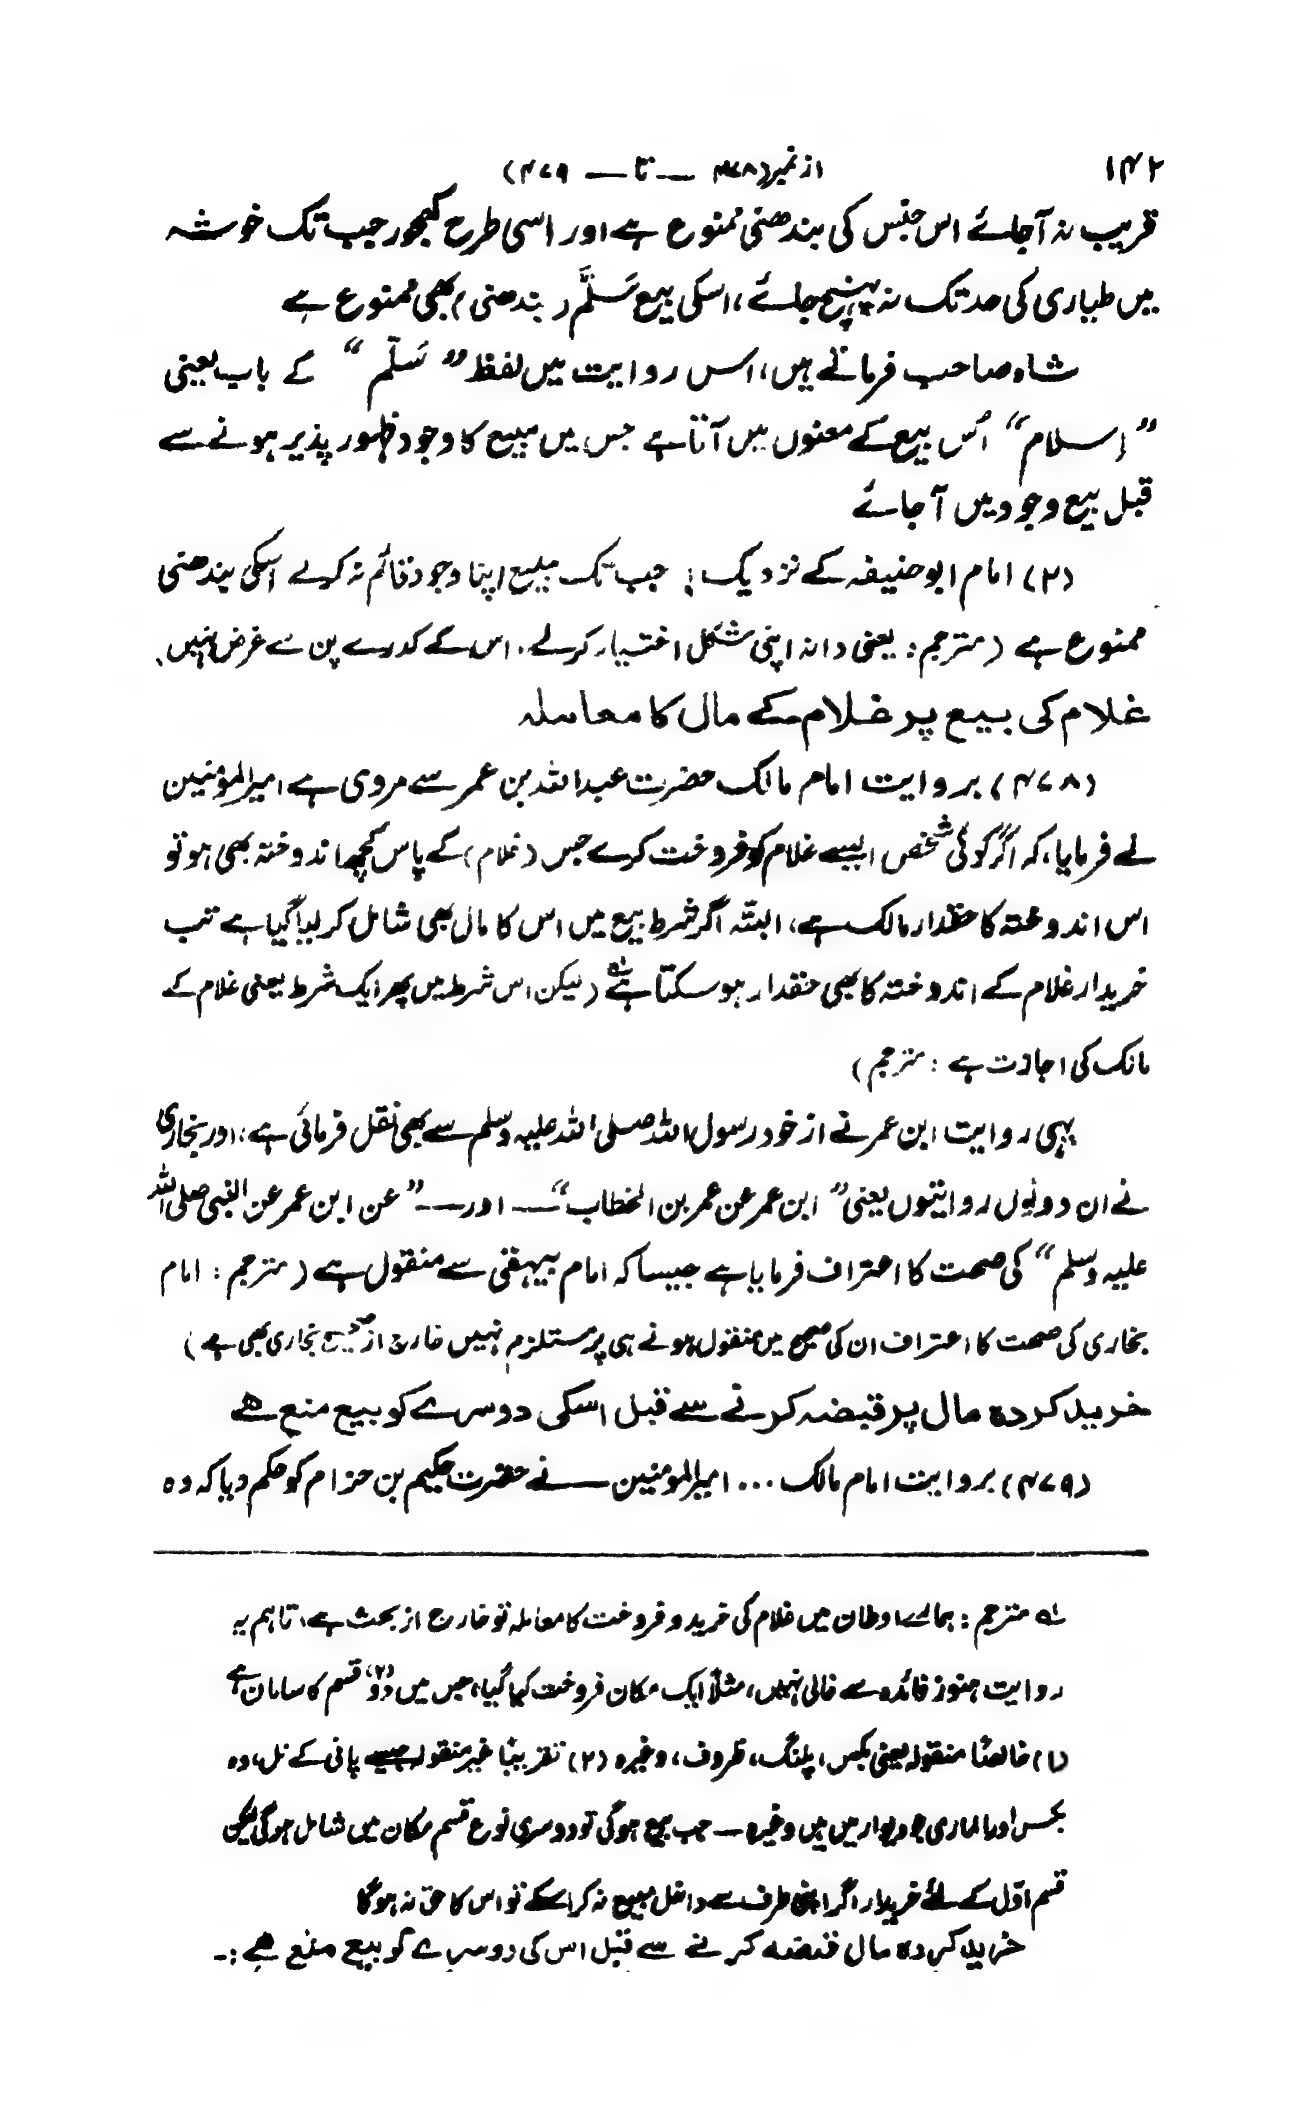 ۱۴۲
از نمبر (۴۷۸ — تا — ۴۷۹)
قریب نہ آجائے اس جنس کی بندھنی ممنوع ہے اور اسی طرح کھجور جب تک خوشہ
میں طیاری کی حد تک نہ پہنچ جائے، اسکی بیع سَلَّم (بندھنی) بھی ممنوع ہے
شاہ صاحب فرماتے ہیں، اس روایت میں لفظ ”سَلّم“ کے باب یعنی
”اِسلام“ اُس بیع کے معنوں میں آتا ہے جس میں مبیع کا وجود ظہور پذیر ہونے سے
قبل بیع وجود میں آجائے
(۲) امام ابو حنیفہ کے نزدیک: جب تک مبیع اپنا وجود قائم نہ کرلے اسکی بندھنی
ممنوع ہے (مترجم: یعنی دانہ اپنی شکل اختیار کرلے، اس کے کدرے پن سے غرض نہیں،
غلام کی بیع پر غلام کے مال کا معاملہ
(۴۷۸) بروایت امام مالک حضرت عبداللہ بن عمر سے مروی ہے امیرالمؤمنین
نے فرمایا، کہ اگر کوئی شخص ایسے غلام کو فروخت کرے جس (غلام) کے پاس کچھ اندوختہ بھی ہو تو
اس اندوختہ کا حقدار مالک ہے، البتّہ اگر شرط بیع میں اس کا مال بھی شامل کر لیا گیا ہے تب
خریدار غلام کے اندوختہ کا بھی حقدار ہو سکتا ہے؂۱ (لیکن اس شرط میں پھر ایک شرط یعنی غلام کے
مالک کی اجازت ہے : مترجم)
یہی روایت ابن عمر نے از خود رسول اللہ صلی اللہ علیہ وسلم سے بھی نقل فرمائی ہے، اور بخاری
نے ان دونوں روایتوں یعنی ”ابن عمر عن عمر بن الخطاب“ — اور — ”عن ابن عمر عن النبی صلی اللہ
علیہ وسلم“ کی صحت کا اعتراف فرمایا ہے جیسا کہ امام بیہقی سے منقول ہے (مترجم: امام
بخاری کی صحت کا اعتراف ان کی صحیح میں منقول ہونے ہی پر مستلزم نہیں خارج از صحیح بخاری بھی ہے)
خرید کردہ مال پر قبضہ کرنے سے قبل اسکی دوسرے کو بیع منع ہے
(۴۷۹) بروایت امام مالک ... امیرالمومنین — نے حضرت حکیم بن حزام کو حکم دیا کہ وہ
؂۱ مترجم: ہمارے اوطان میں غلام کی خرید و فروخت کا معاملہ تو خارج از بحث ہے، تاہم یہ
روایت ہنوز فائدہ سے خالی نہیں، مثلاً ایک مکان فروخت کیا گیا، جس میں دو (۲) قسم کا سامان ہے
(۱) خالصًا منقولہ یعنی بکس، پلنگ، ظروف، وغیرہ (۲) تقریبًا غیر منقولہ جیسے پانی کے نل، وہ
بکس اور الماری جو دیوار میں ہیں وغیرہ — جب بیع ہوگی تو دوسری نوع قسم مکان میں شامل ہوگی لیکن
قسم اوّل کے لئے خریدار اگر اپنی طرف سے داخل مبیع نہ کرا سکے تو اس کا حق نہ ہوگا
خرید کردہ مال قبضہ کرنے سے قبل اس کی دوسرے کو بیع منع ہے :-